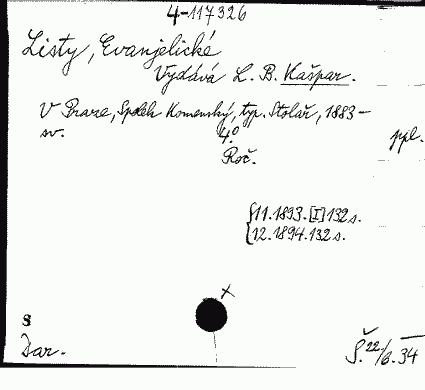 4-117326
Listy, Evanjelické
Vydává L. B. Kašpar.
V Praze, Spolek Komenský, typ. Stolař, 1883-
sv. 4.° ppl.
Roč.
11.1893.[I] 132 s.
12.1894. 132 s.
x
s
Dar.
Š. 22/6. 34